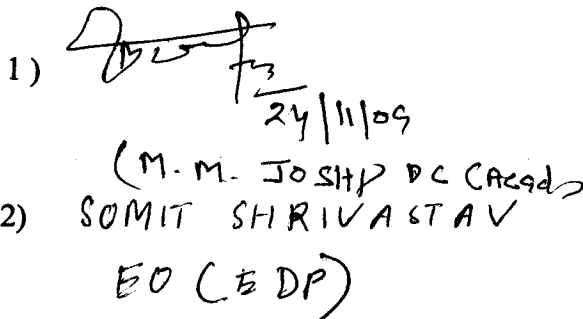 1)
24/11/09
(M. M. JOSHI) DC (Acad)
2) SOMIT SHRIVASTAV
EO (EDP)